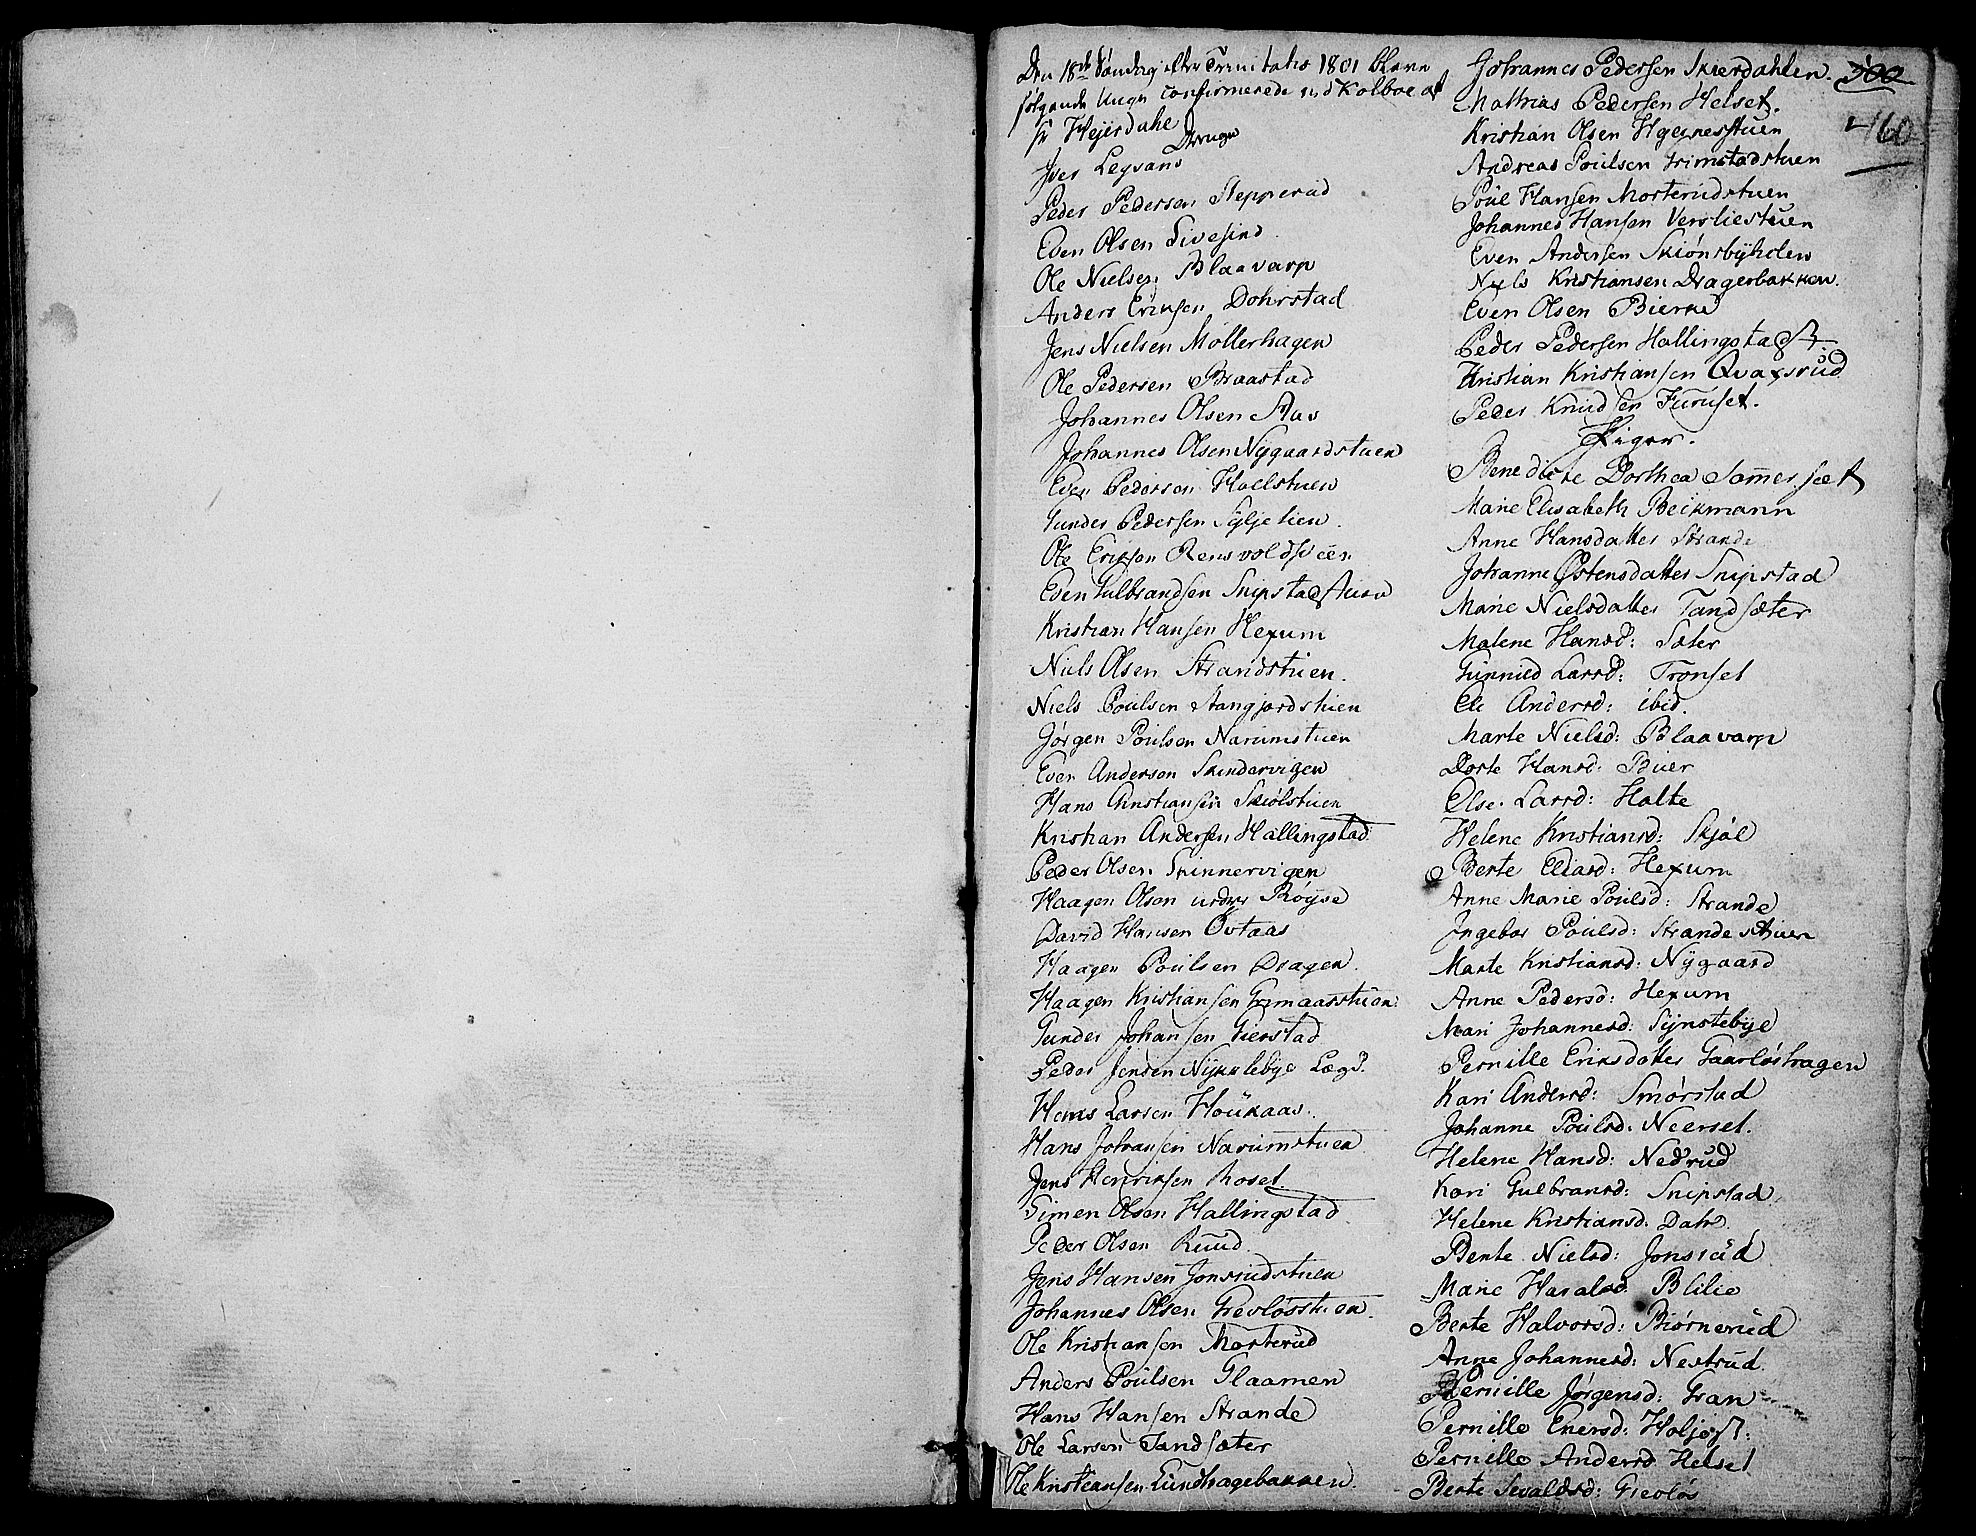 Den 18de Søndag efter Trinitatis 1801 bleve
følgende Unge Confirmerede ved Kolboe af
Hr Hejerdahl
Drenge
Iver Legsand
Peder Pedersen Stepperud
Even Olsen Sivesind
Ole Nielsen Blaavarp
Anders Eriksen Dohrstad
Jens Nielsen Møllerhagen
Ole Pedersen Braastad
Johannes Olsen Aas
Johannes Olsen Nygaardstuen
Even Pedersen Hoelstuen
Gunder Pedersen Syljelien
Ole Eriksen Rensvoldsveen
Even Gulbrandsen Snipstadstuen
Kristian Hansen Hexum
Niels Olsen Strandstuen
Niels Poulsen Stangjordstuen
Jørgen Poulsen Narumstuen
Even Andersen Skindervigen
Hans Christiansen Skiølstuen
Kristian Andersen Hallingstad
Peder Olsen Skinnervigen
Haagen Olsen under Røyse
David Hansen Østaas
Haagen Poulsen Dragen
Haagen Kristiansen Grimaasstuen
Gunder Johansen Gierstad
Peder Jensen Nykulebye Lægd.
Hans Larsen Houkaas
Hans Johansen Narumstuen
Jens Henriksen Roset
Simen Olsen Hallingstad
Peder Olsen Ruud
Jens Hansen Jonsrudstuen
Johannes Olsen Grevløsstuen
Ole Kristiansen Morterud
Anders Poulsen Glaamen
Hans Hansen Strande
Ole Larsen Tandsæter
Ole Kristiansen Lundhagebakken
Johannes Pedersen Skierdahlen
Mathias Pedersen Helset
Kristian Olsen Hgeknestuen
Andreas Poulsen Grimstadstuen
Poul Hansen Morterudstuen
Johannes Hansen Versliestuen
Even Andersen Skiønsbyholen
Niels Kristiansen Dragerbakken
Even Olsen Bierke
Peder Pedersen Hallingstad
Kristian Kristiansen Qvaxsrud
Peder Knudsen Furuset
Piger.
Benedicte Dorthea Sommerfeldt
Marie Elisabeth Beckmann
Anne Hansdatter Strande
Johanne Østensdatter Snipstad
Marie Nielsdatter Tandsæter
Malene Hansd: Sæter
Gunnild Larsd: Tronset
Eli Andersd: ibid.
Marte Nielsd: Blaavarp
Dorte Hansd: Buer
Else Larsd: Holte
Helene Kristiansd: Skjøl
Berte Eliasd: Hexum
Anne Marie Poulsd: Strande
Ingebor Poulsd: Strandestuen
Marte Kristiansd: Nygaard
Anne Pedersd: Hexum
Mari Johannesd: Synstebye
Pernille Eriksdatter Gaarløshagen
Kari Andersd: Smørstad
Johanne Poulsd: Neerset
Helene Hansd: Nedrud
Kari Gulbransd: Snipstad
Helene Kristiansd. Dahl
Berte Nielsd: Jonsrud
Marie Haralsd Blilie
Berte Halvorsd: Biørnerud
Anne Johannesd: Nestrud
Pernille Jørgensd: Gran
Pernille Enersd: Holjest:
Pernille Andersd Helset
Berte Sevaldsd: Grevløs
300
460